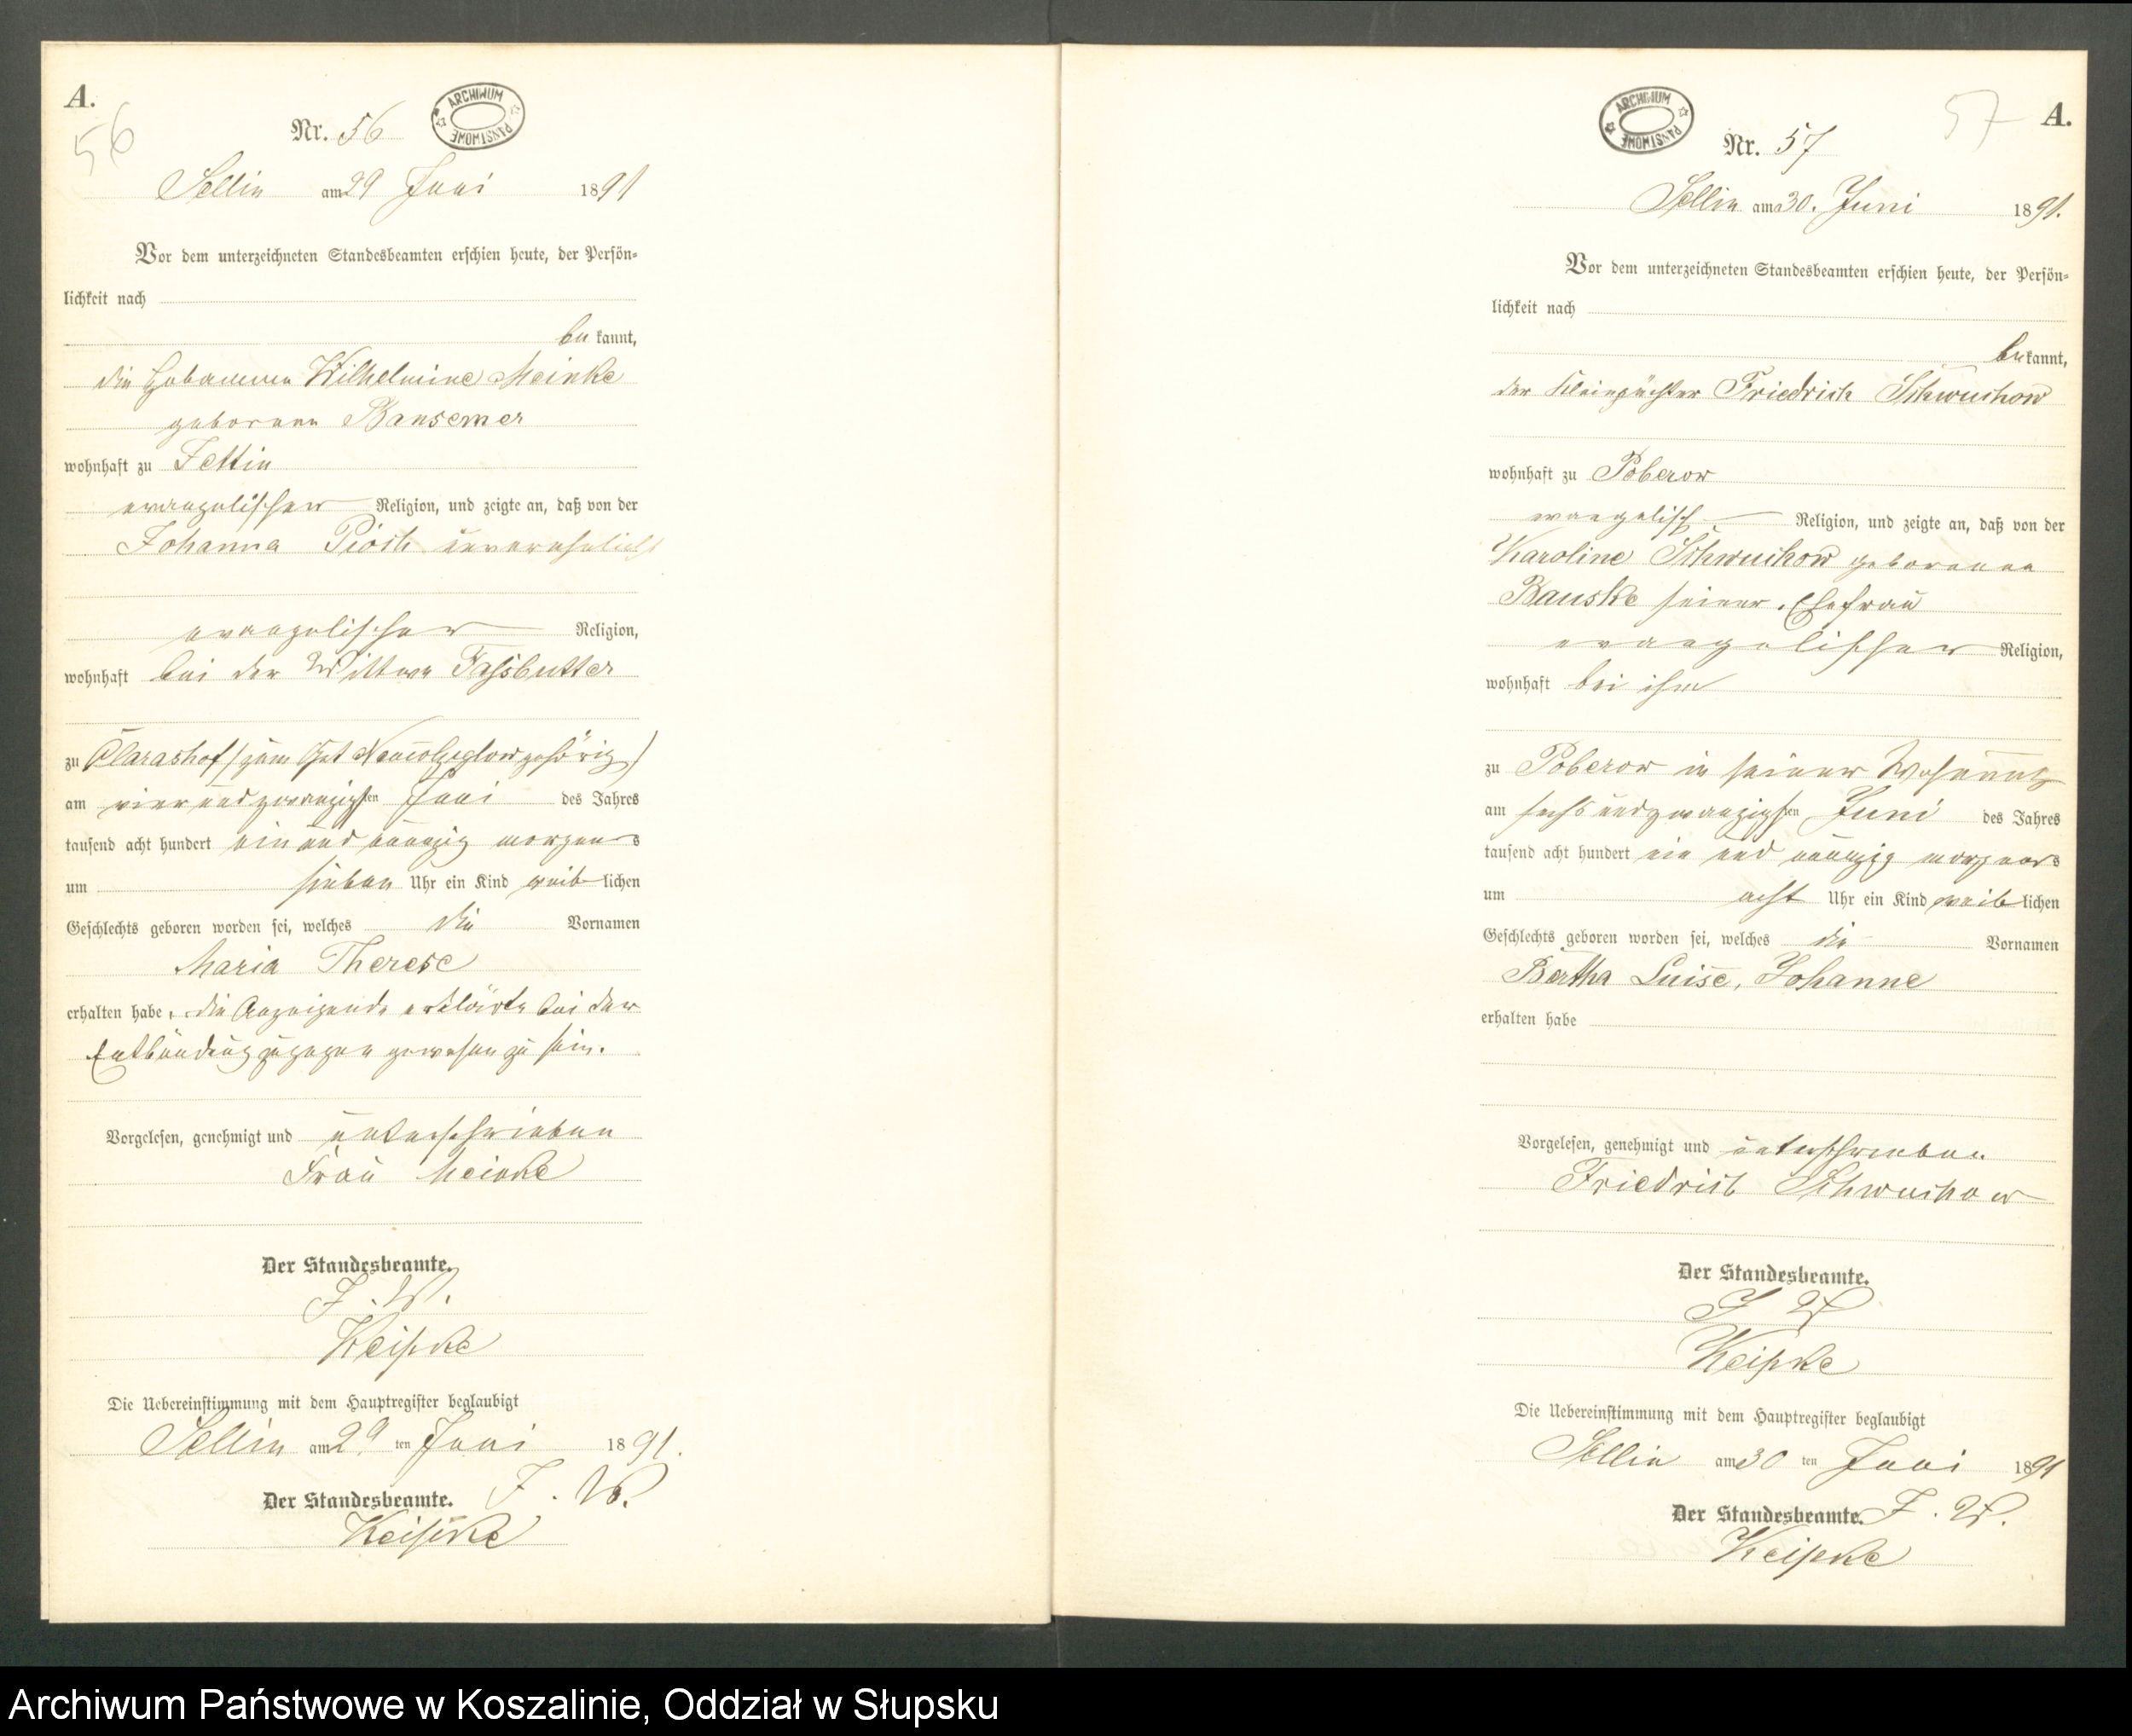 A.
56
Nr. 56
ARCHIWUM PAŃSTWOWE
Sellin am 29 Juni 1891
Vor dem unterzeichneten Standesbeamten erschien heute, der Persön-
lichkeit nach
be kannt,
die Hebamme Wilhelmine Meinke
geborene Bansemer
wohnhaft zu Zettin
evangelischer Religion, und zeigte an, daß von der
Johanna Piosk unverehelicht
evangelischer Religion,
wohnhaft bei der Wittwe Fassbutter
zu Clarashof (zum Gut gehörig)
am vier und zwanzigsten Juni des Jahres
tausend acht hundert ein und neunzig morgens
um sieben Uhr ein Kind weib lichen
Geschlechts geboren worden sei, welches die Vornamen
Maria Therese
erhalten habe, die Anzeigende erklärte bei der
Entbindung zugegen gewesen zu sein.
Vorgelesen, genehmigt und unterschrieben
Frau Meinke
Der Standesbeamte.
J. V.
Keipke
Die Uebereinstimmung mit dem Hauptregister beglaubigt
Sellin am 29 ten Juni 1891.
Der Standesbeamte. J. V.
Keipke
57
A.
ARCHIWUM PAŃSTWOWE
Nr. 57
Sellin am 30. Juni 1891.
Vor dem unterzeichneten Standesbeamten erschien heute, der Persön-
lichkeit nach
be kannt,
der Kleinpächter Friedrich Schwuchow
wohnhaft zu Poberow
evangelisch Religion, und zeigte an, daß von der
Karoline Schwuchow geborenen
Bauske seiner Ehefrau
evangelischer Religion,
wohnhaft bei ihm
zu Poberow in seiner Wohnung
am sechs und zwanzigsten Juni des Jahres
tausend acht hundert ein und neunzig morgens
um acht Uhr ein Kind weib lichen
Geschlechts geboren worden sei, welches die Vornamen
Bertha Luise, Johanne
erhalten habe
Vorgelesen, genehmigt und unterschrieben
Friedrich Schwuchow
Der Standesbeamte.
J V
Keipke
Die Uebereinstimmung mit dem Hauptregister beglaubigt
Sellin am 30 ten Juni 1891
Der Standesbeamte. J. V.
Keipke
Archiwum Państwowe w Koszalinie, Oddział w Słupsku